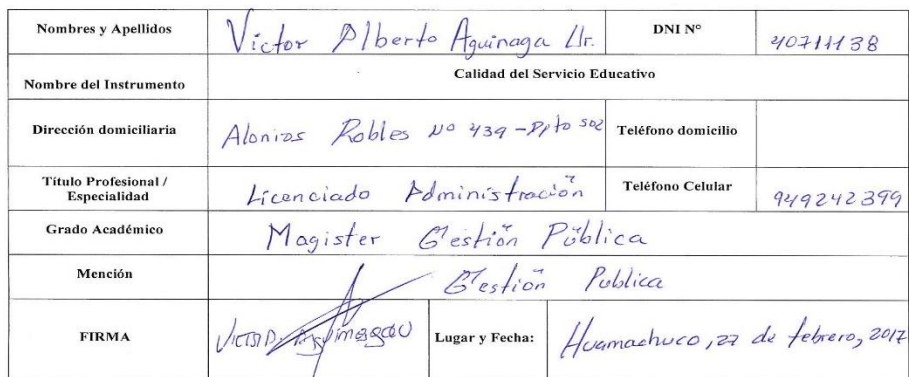 Nombres y Apellidos Victor Alberto Aguinaga Ur. DNI N° 40711138
Nombre del Instrumento Calidad del Servicio Educativo
Dirección domiciliaria Robles N° 439 - Dpto 502 Teléfono domicilio
Título Profesional /
Especialidad Licenciado Administración Teléfono Celular 949242399
Grado Académico Magister Gestión Pública
Mención Gestión Publica
FIRMA Lugar y Fecha: Huamachuco, 27 de febrero, 2017